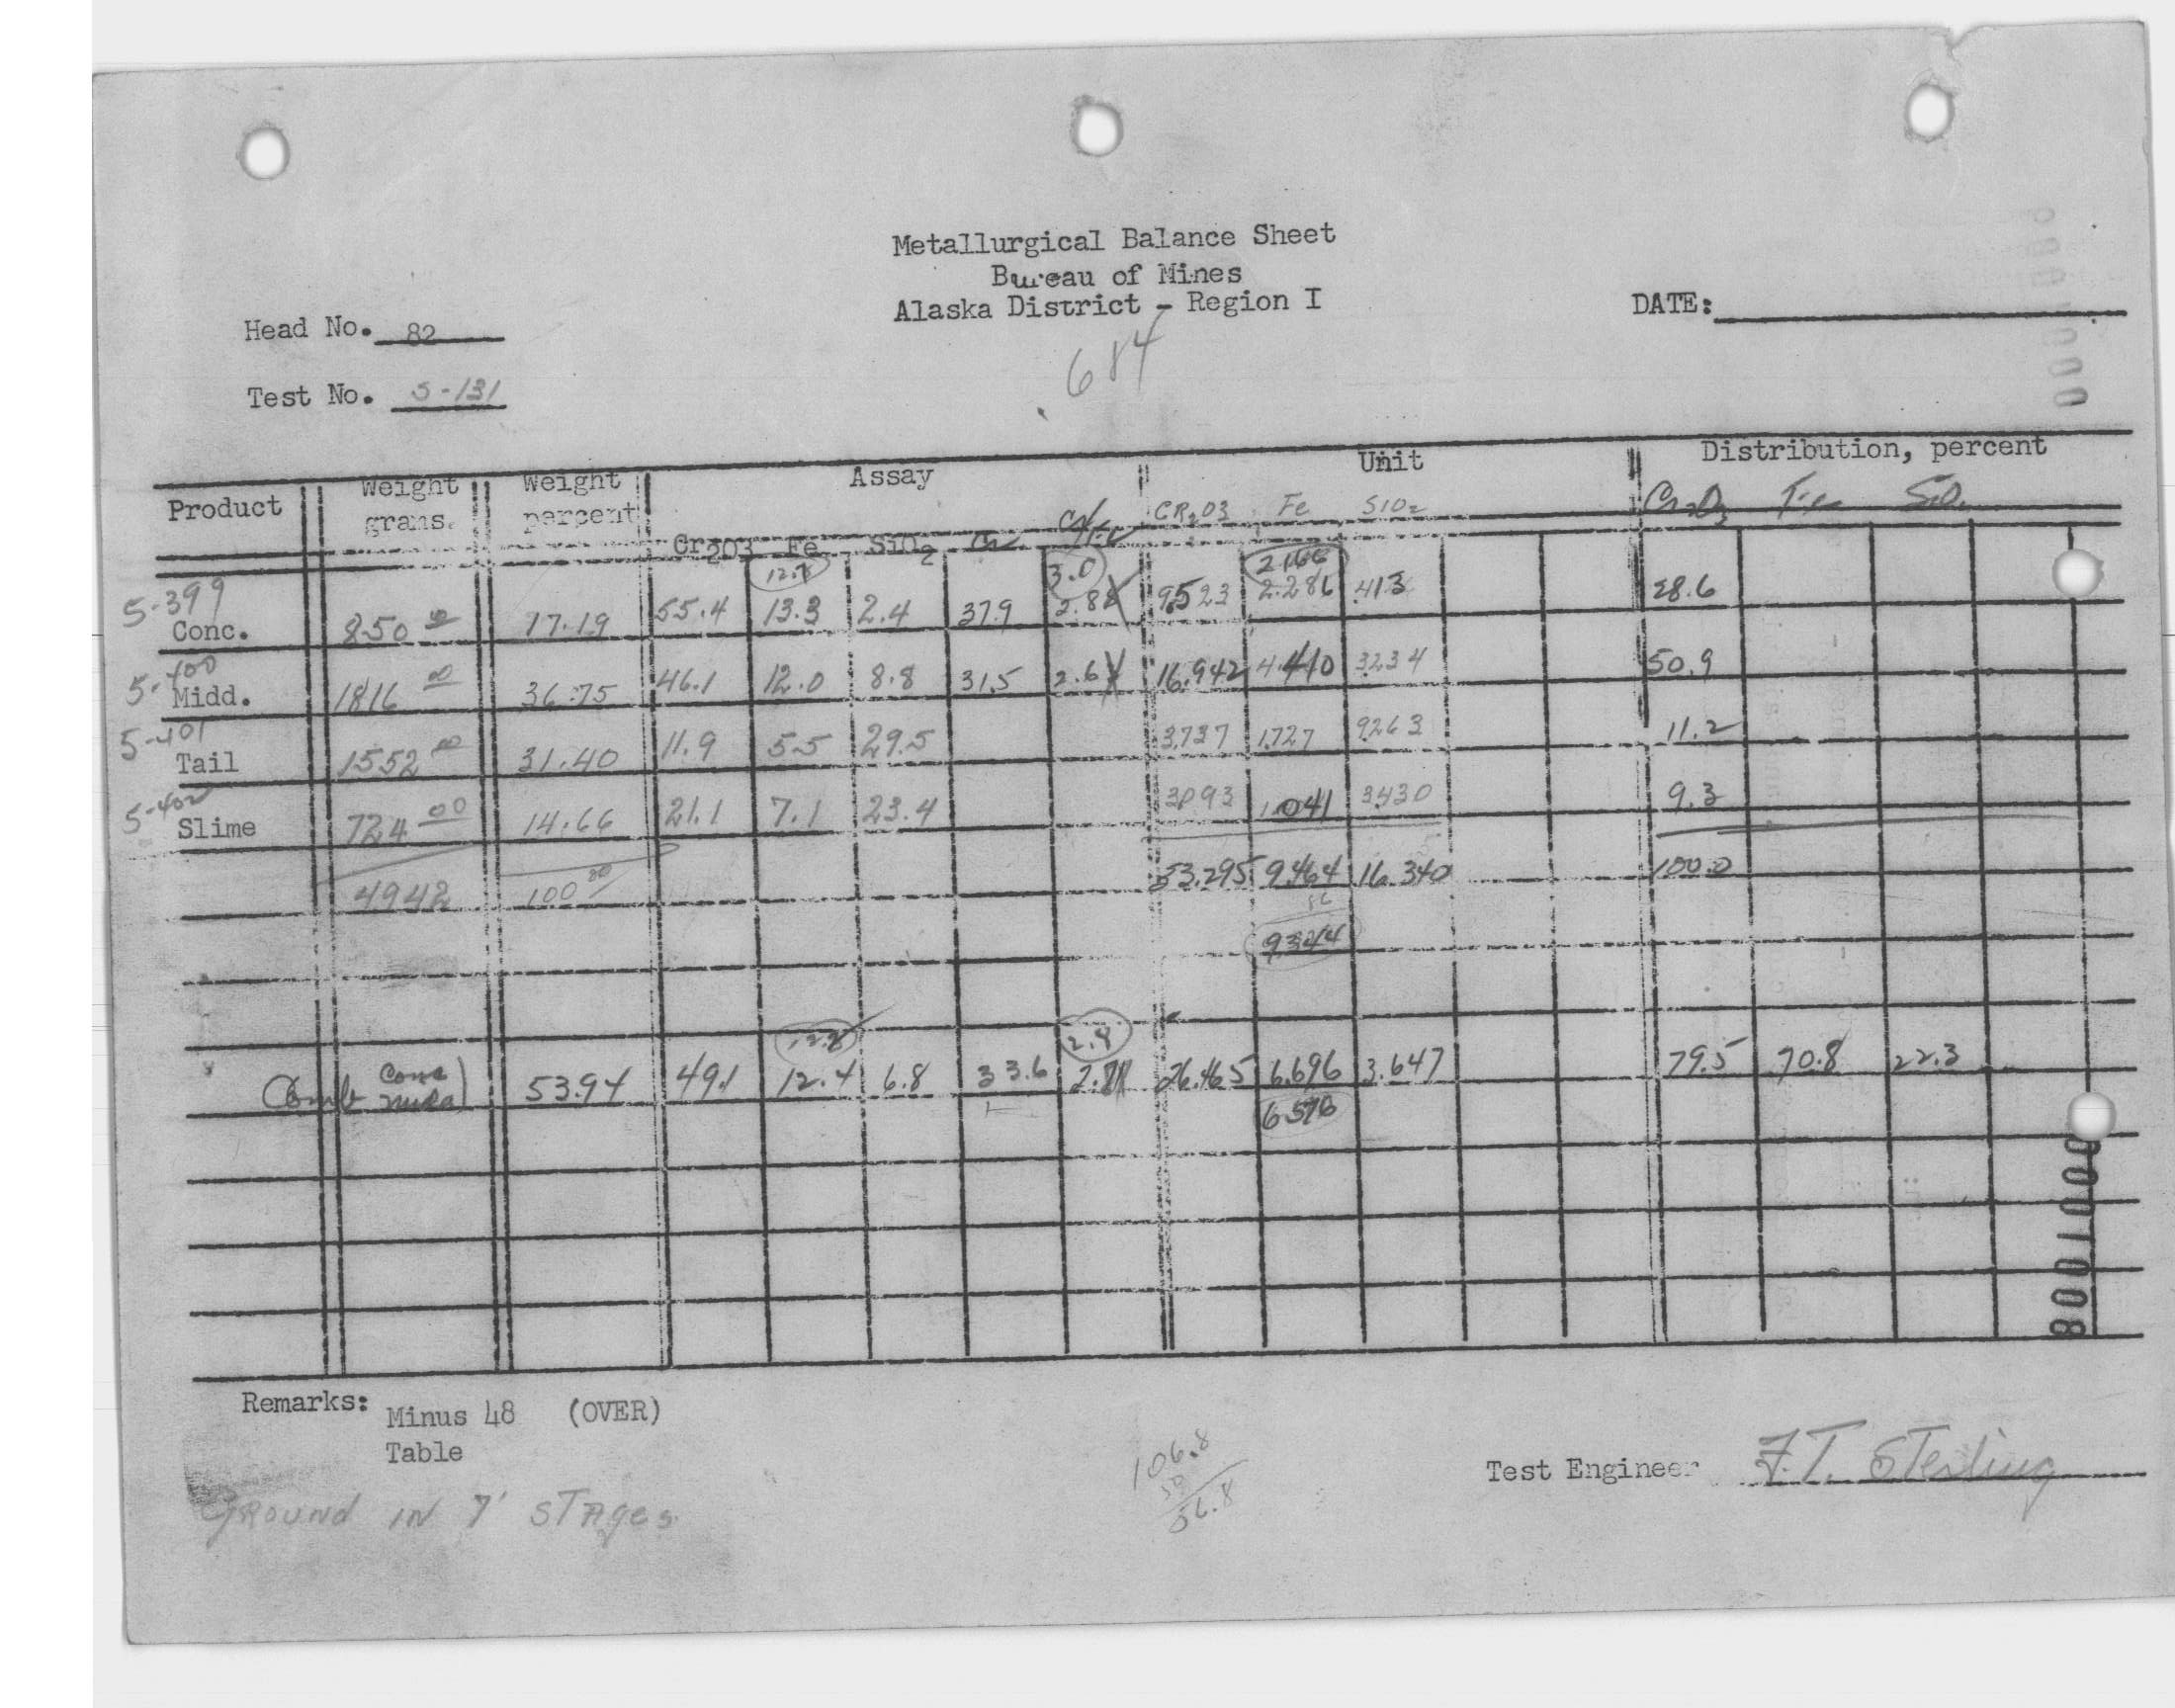 Metallurgical Balance Sheet
Bureau of Mines
Alaska District - Region I
DATE:
Head No. 82
Test No. S-131
.684
Product Weight grams. Weight percent Assay Unit Distribution, percent
Cr2O3 Fe SiO2 Cr Cr/Fe CR2O3 Fe SIO2 Cr2O3 Fe SiO2
12.7 3.0 2.166
5-399
Conc. 850 00 17.19 55.4 13.3 2.4 37.9 2.8 9.523 2.286 .413 28.6
5-400
Midd. 1816 00 36.75 46.1 12.0 8.8 31.5 2.6 16.942 4.410 3.234 50.9
5-401
Tail 1552 00 31.40 11.9 5.5 29.5 3.737 1.727 9.263 11.2
5-402
Slime 724 00 14.66 21.1 7.1 23.4 3.093 1.041 3.430 9.3
4942 100 00 33.295 9.464 16.340 100.0
9.344
12.2 2.8
Comb Conc Midd 53.94 49.1 12.4 6.8 33.6 2.71 26.465 6.696 3.647 79.5 70.8 22.3
6.576
Remarks: Minus 48 (OVER)
Table
GROUND IN 7' STAges
106.8
50
56.8
Test Engineer F.T. STerling
00010008